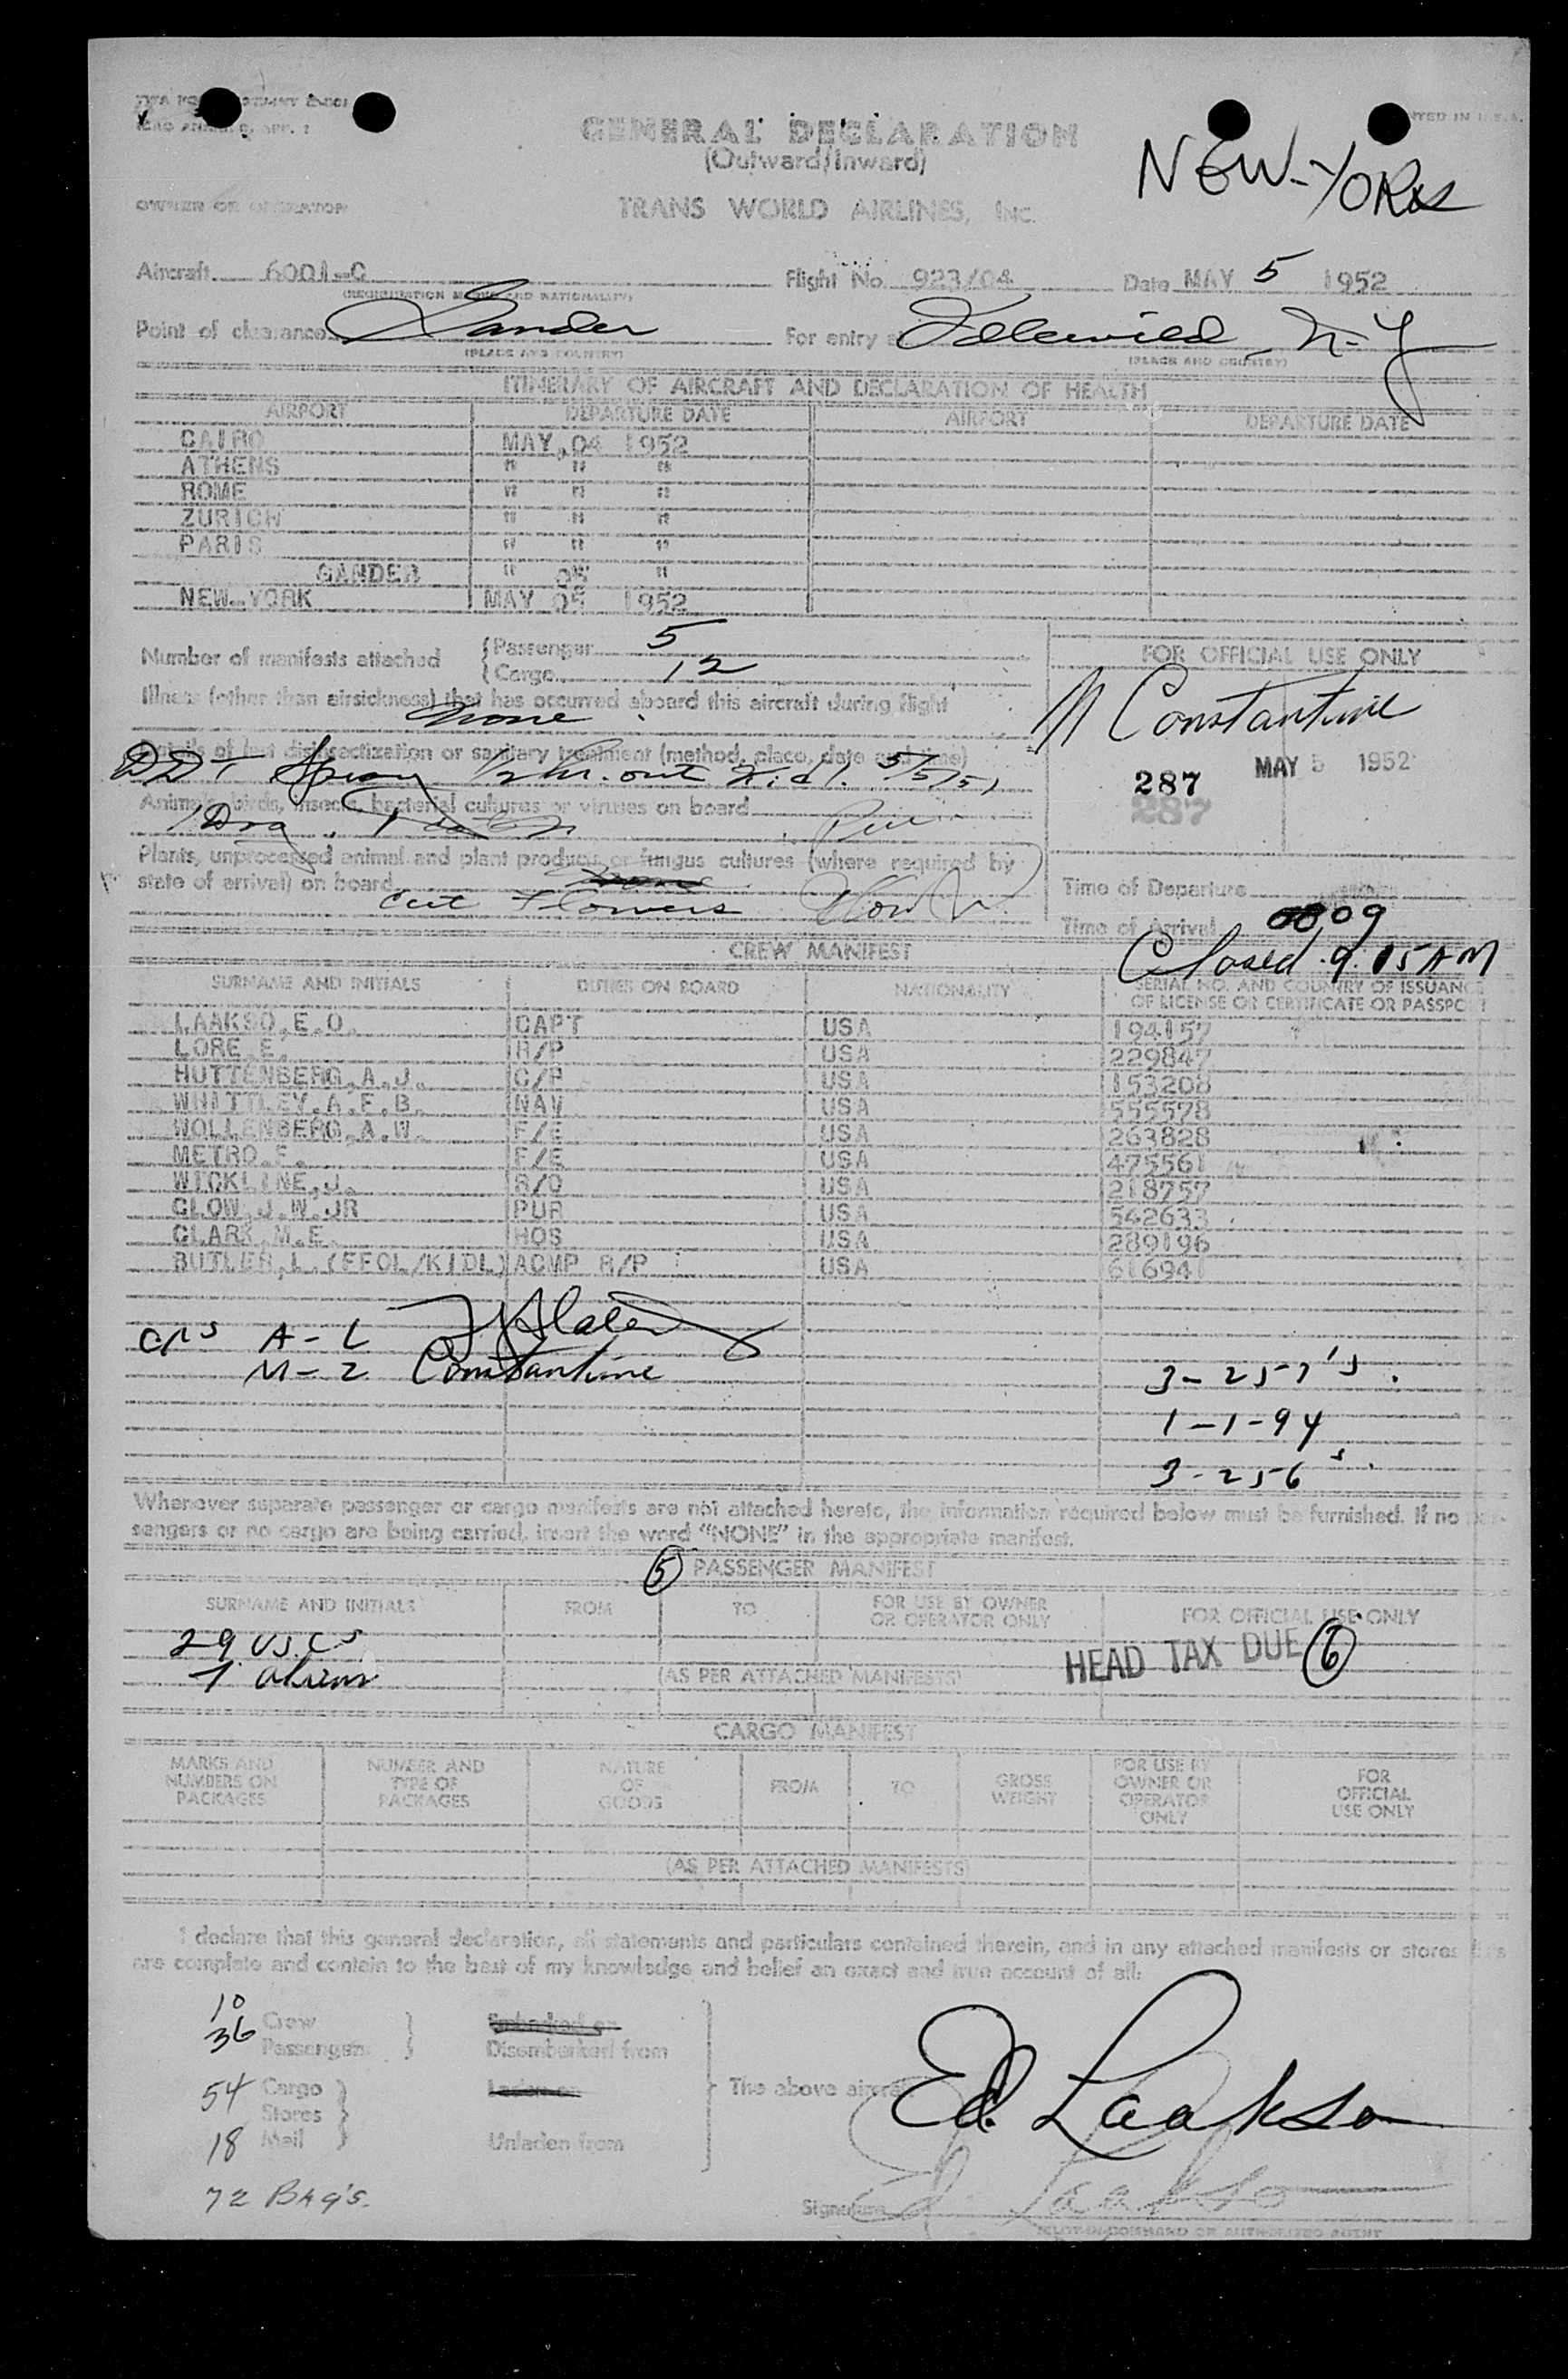 GENERAL DECLARATION
(Outward/Inward)
NEW-YORK
OWNER OR OPERATOR
TRANS WORLD AIRLINES, INC.
Aircraft 6001-C Flight No. 923/04 Date MAY 5 1952
(REGISTRATION MARKS AND NATIONALITY)
Point of clearance Gander For entry at Idlewild, N-Y
(PLACE AND COUNTRY) (PLACE AND COUNTRY)
ITINERARY OF AIRCRAFT AND DECLARATION OF HEALTH
AIRPORT DEPARTURE DATE AIRPORT DEPARTURE DATE
CAIRO MAY 04 1952
ATHENS " " "
ROME " " "
ZURICH " " "
PARIS " " "
GANDER " 05 "
NEW-YORK MAY 05 1952
Number of manifests attached Passenger 5
Cargo 12
FOR OFFICIAL USE ONLY
Illness (other than airsickness) that has occurred aboard this aircraft during flight
None
Constantine
Details of last disinsectization or sanitary treatment (method, place, date and time)
DDT Spray 1/2 hr. out
287 MAY 5 1952
287
Animals, birds, insects, bacterial cultures or viruses on board
1 Dog
Plants, unprocessed animal and plant products or fungus cultures (where required by
state of arrival) on board None
cut Flowers
Time of Departure
Time of Arrival 09
Closed 9.15 AM
CREW MANIFEST
SURNAME AND INITIALS DUTIES ON BOARD NATIONALITY SERIAL NO. AND COUNTRY OF ISSUANCE
OF LICENSE OR CERTIFICATE OR PASSPORT
LAAKSO,E.O. CAPT USA 194157
LORE,E. R/P USA 229847
HUTTENBERG,A.J. C/P USA 153208
WHITTLEY,A.E.B. NAV USA 555578
WOLLENBERG,A.W. F/E USA 263828
METRO,F. F/E USA 475561
WICKLINE,J. R/O USA 218757
CLOW,J.W.JR PUR USA 542633
CLARK,M.E. HOS USA 289196
BUTLER,L.(EFOL/KIDL) ACMP R/P USA 616941
A-L
M-Z Constantine
3-257's.
1-1-94
3-256's.
Whenever separate passenger or cargo manifests are not attached hereto, the information required below must be furnished. If no
sengers or no cargo are being carried, insert the word "NONE" in the appropriate manifest.
5 PASSENGER MANIFEST
SURNAME AND INITIALS FROM TO FOR USE BY OWNER
OR OPERATOR ONLY FOR OFFICIAL USE ONLY
29 USCs
7 aliens
(AS PER ATTACHED MANIFESTS)
HEAD TAX DUE 6
CARGO MANIFEST
MARKS AND
NUMBERS ON
PACKAGES NUMBER AND
TYPE OF
PACKAGES NATURE
OF
GOODS FROM TO GROSS
WEIGHT FOR USE BY
OWNER OR
OPERATOR
ONLY FOR
OFFICIAL
USE ONLY
(AS PER ATTACHED MANIFESTS)
I declare that this general declaration, all statements and particulars contained therein, and in any attached manifests or stores
are complete and contain to the best of my knowledge and belief an exact and true account of all:
10 Crew Embarked on
36 Passengers Disembarked from
54 Cargo Laden on The above aircraft
Stores
18 Mail Unladen from
72 BAG'S.
Ed. Laakso
Signature Ed Laakso
PILOT-IN-COMMAND OR AUTHORIZED AGENT